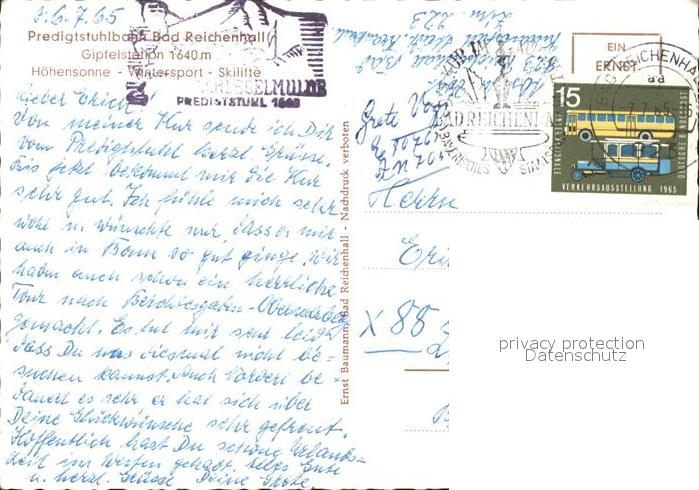 d. 6.7.65
Predigtstuhlbahn Bad Reichenhall
Gipfelstation 1640 m
Höhensonne - Wintersport - Skilifte
SCHLEGELMULDE
PREDIGTSTUHL
Lieber Erich!
Von meiner Kur sende ich Dir
vom Predigtstuhl herzl. Grüsse.
Bis jetzt bekommt mir die Kur
sehr gut. Ich fühle mich sehr
wohl u. wünschte nur, dass es mir
auch in Bonn so gut ginge. Wir
haben auch schon eine herrliche
Tour nach Berchtesgaden-Obersalzberg
gemacht. Es tut mir sehr leid,
dass Du uns diesmal nicht be-
suchen kannst. Auch be-
dauert es sehr er hat sich über
Deine Glückwünsche sehr gefreut.
Hoffentlich hast Du schöne Urlaubs-
zeit in gehabt. Alles Gute
u. herzl. Grüsse Deine Grete
Ernst Baumann, Bad Reichenhall - Nachdruck verboten
Grete
823
Zim. 223
EIN
ERNST
BAD REICHENHALL
BAYERISCHES STAATSBAD
REICHENHALL
15
DEUTSCHE BUNDESPOST
INTERNATIONALE
VERKEHRSAUSSTELLUNG 1965
Herrn
Eri
X 88
privacy protection
Datenschutz